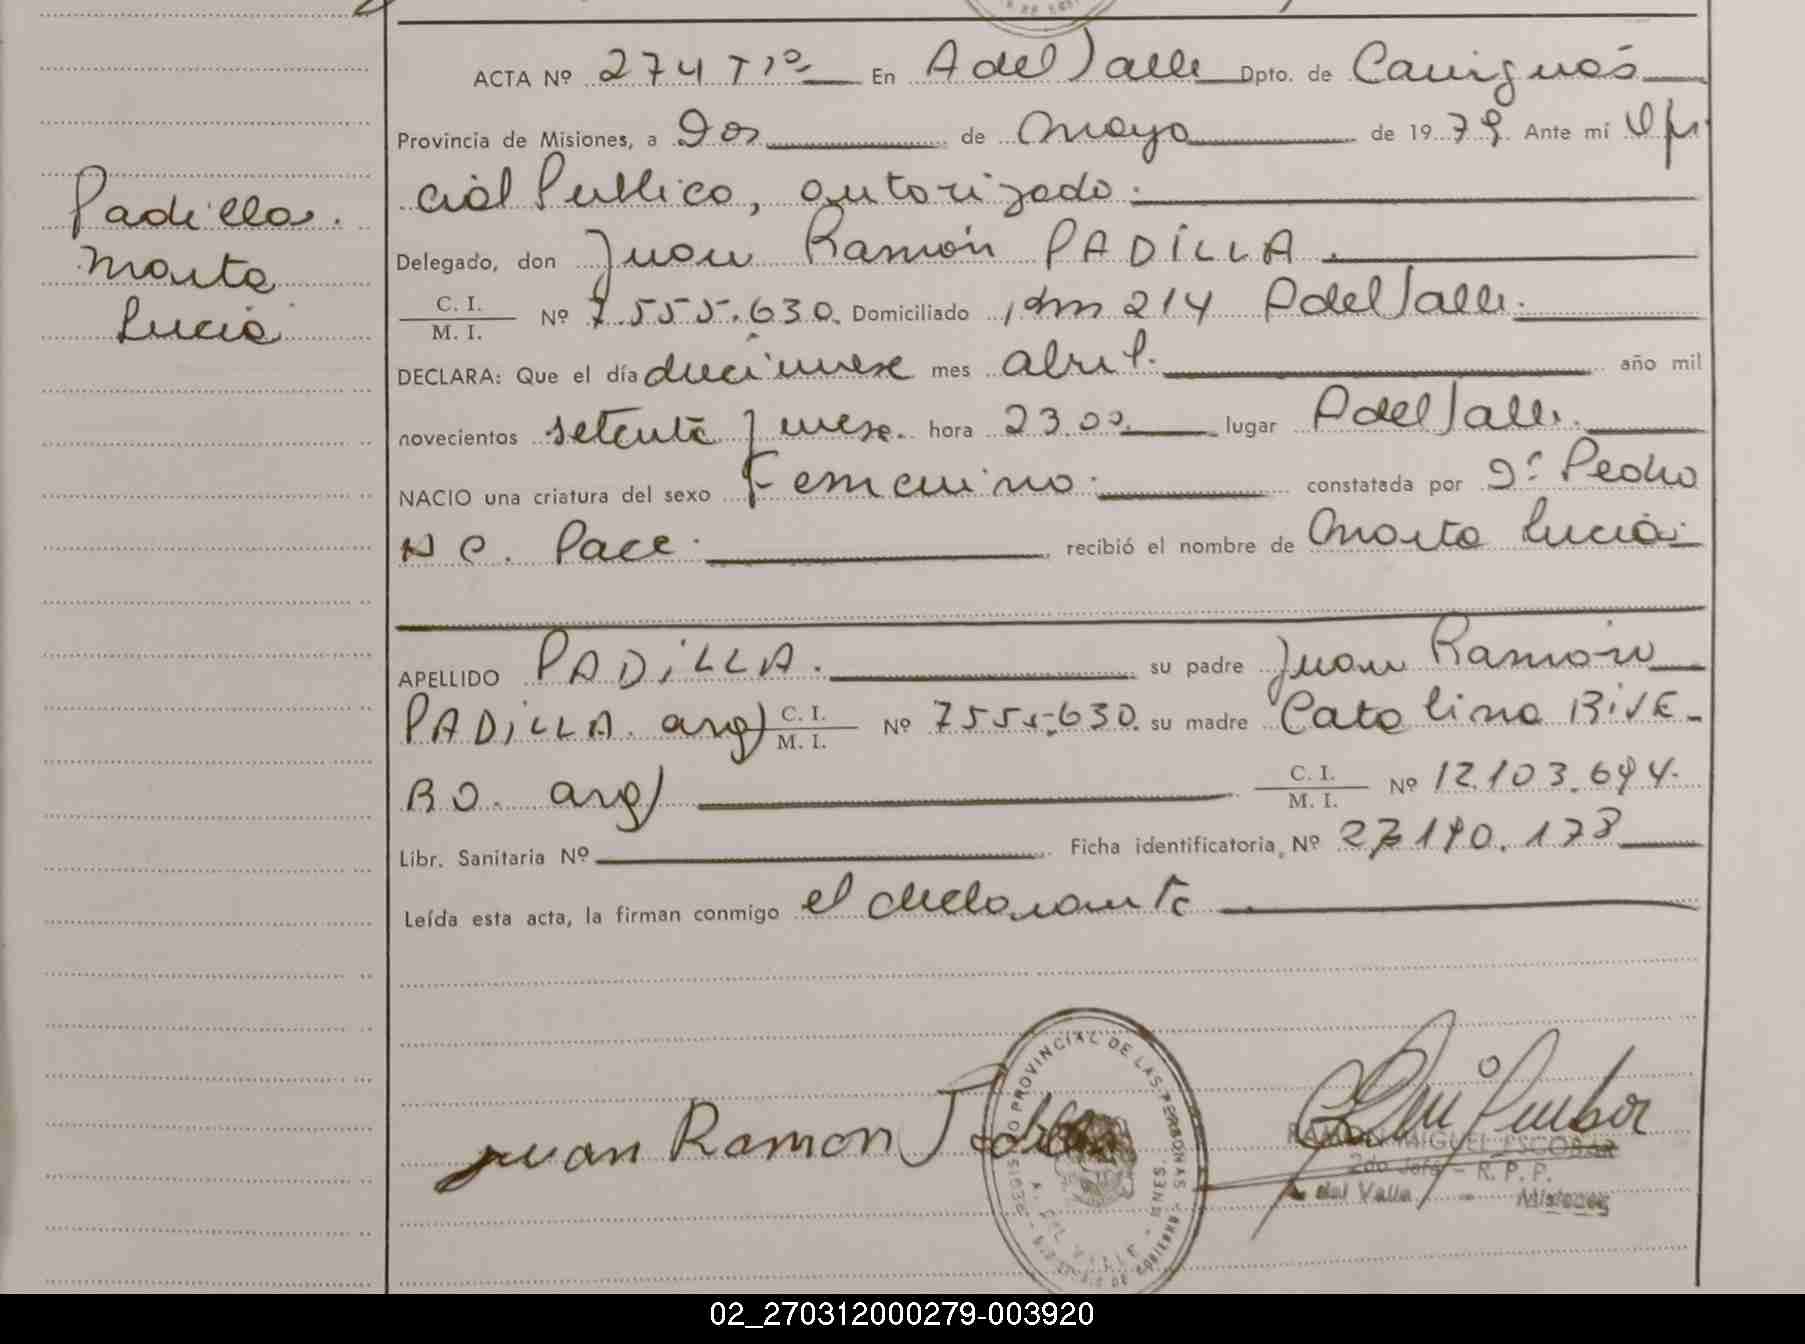 Padilla.
Marta
Lucia
ACTA Nº 274 Tº 1º En A del Valle Dpto. de Cainguás
Provincia de Misiones, a Dos de mayo de 1979. Ante mí Ofi
cial Publico, autorizado.
Delegado, don Juan Ramón PADILLA.
C. I.
M. I. Nº 7.555.630. Domiciliado Km 214 A del Valle.
DECLARA: Que el día diecinueve mes abril. año mil
novecientos setenta y nueve. hora 23.00. lugar A del Valle.
NACIO una criatura del sexo Femenino. constatada por Dr. Pedro
N C. Pace. recibió el nombre de Marta Lucia.
APELLIDO PADILLA. su padre Juan Ramón
PADILLA. arg) C. I.
M. I. Nº 7555.630. su madre Catalina RIVE-
RO. arg) C. I.
M. I. Nº 12.103.694.
Libr. Sanitaria Nº Ficha identificatoria, Nº 27190.178
Leída esta acta, la firman conmigo el declarante
juan Ramon Padilla
REGISTRO PROVINCIAL DE LAS PERSONAS
A. DEL VALLE - MNES
RAMON MIGUEL ESCOBAR
2do Jefe - R. P. P.
A. del Valle - Misiones
02_270312000279-003920